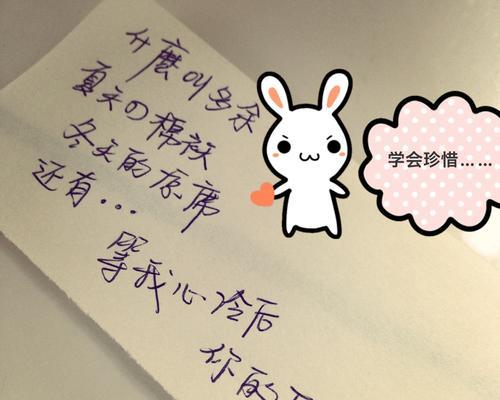 什麼叫多余
夏天の棉袄
冬天的凉席
还有...
等我心冷后
你的
学会珍惜... ...